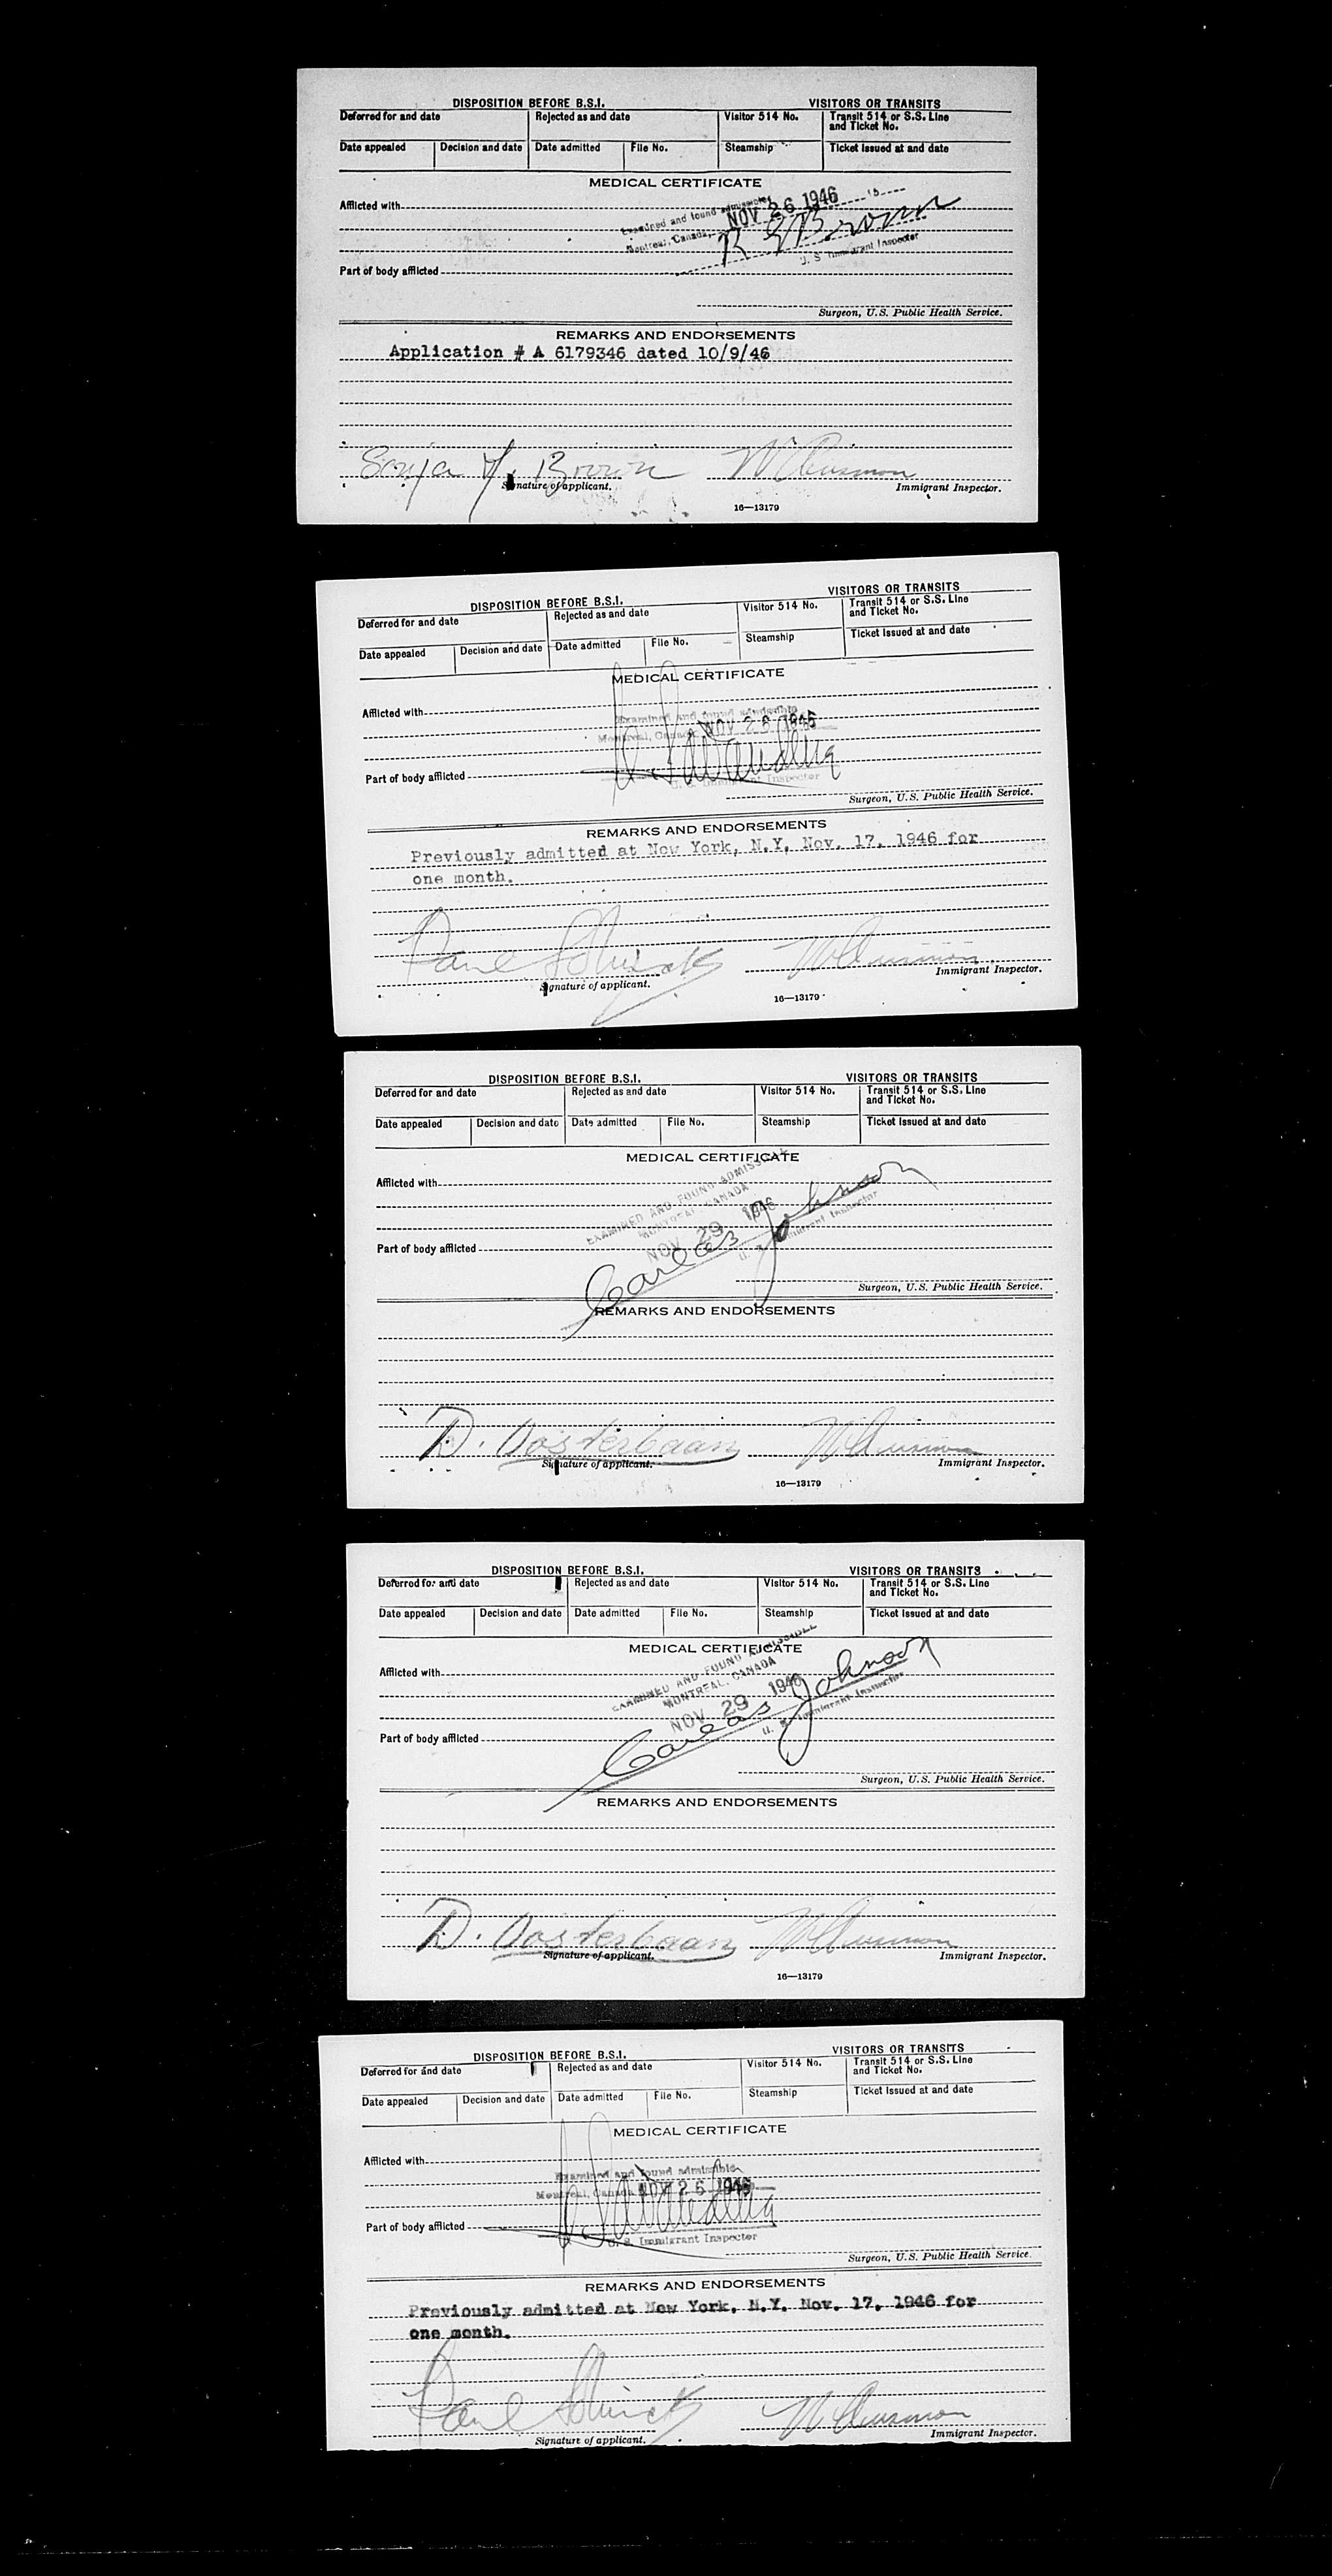 DISPOSITION BEFORE B.S.I. VISITORS OR TRANSITS
Deferred for and date Rejected as and date Visitor 514 No. Transit 514 or S.S. Line and Ticket No.
Date appealed Decision and date Date admitted File No. Steamship Ticket issued at and date
MEDICAL CERTIFICATE
Afflicted with
Examined and found admissible
Montreal, Canada, NOV 26 1946
R E Brown
U. S. Immigrant Inspector
Part of body afflicted
Surgeon, U.S. Public Health Service.
REMARKS AND ENDORSEMENTS
Application # A 6179346 dated 10/9/46
Sonja Brown
Signature of applicant. Immigrant Inspector.
16—13179
DISPOSITION BEFORE B.S.I. VISITORS OR TRANSITS
Deferred for and date Rejected as and date Visitor 514 No. Transit 514 or S.S. Line and Ticket No.
Date appealed Decision and date Date admitted File No. Steamship Ticket issued at and date
MEDICAL CERTIFICATE
Afflicted with
Examined and found admissible
Montreal, Canada NOV 26 1946
U. S. Immigrant Inspector
Part of body afflicted
Surgeon, U.S. Public Health Service.
REMARKS AND ENDORSEMENTS
Previously admitted at New York, N.Y. Nov. 17, 1946 for
one month.
Paul
Signature of applicant. Immigrant Inspector.
16—13179
DISPOSITION BEFORE B.S.I. VISITORS OR TRANSITS
Deferred for and date Rejected as and date Visitor 514 No. Transit 514 or S.S. Line and Ticket No.
Date appealed Decision and date Date admitted File No. Steamship Ticket issued at and date
MEDICAL CERTIFICATE
Afflicted with
EXAMINED AND FOUND ADMISSIBLE
MONTREAL, CANADA
NOV 29 1946
Johnson
U. S. Immigrant Inspector
Part of body afflicted
Surgeon, U.S. Public Health Service.
REMARKS AND ENDORSEMENTS
D. Oosterbaan
Signature of applicant. Immigrant Inspector.
16—13179
DISPOSITION BEFORE B.S.I. VISITORS OR TRANSITS
Deferred for and date Rejected as and date Visitor 514 No. Transit 514 or S.S. Line and Ticket No.
Date appealed Decision and date Date admitted File No. Steamship Ticket issued at and date
MEDICAL CERTIFICATE
Afflicted with
EXAMINED AND FOUND ADMISSIBLE
MONTREAL, CANADA
NOV 29 1946
Johnson
U. S. Immigrant Inspector
Part of body afflicted
Surgeon, U.S. Public Health Service.
REMARKS AND ENDORSEMENTS
D. Oosterbaan
Signature of applicant. Immigrant Inspector.
16—13179
DISPOSITION BEFORE B.S.I. VISITORS OR TRANSITS
Deferred for and date Rejected as and date Visitor 514 No. Transit 514 or S.S. Line and Ticket No.
Date appealed Decision and date Date admitted File No. Steamship Ticket issued at and date
MEDICAL CERTIFICATE
Afflicted with
Examined and found admissible
Montreal, Canada NOV 26 1946
U. S. Immigrant Inspector
Part of body afflicted
Surgeon, U.S. Public Health Service.
REMARKS AND ENDORSEMENTS
Previously admitted at New York, N.Y. Nov. 17, 1946 for
one month.
Paul
Signature of applicant. Immigrant Inspector.